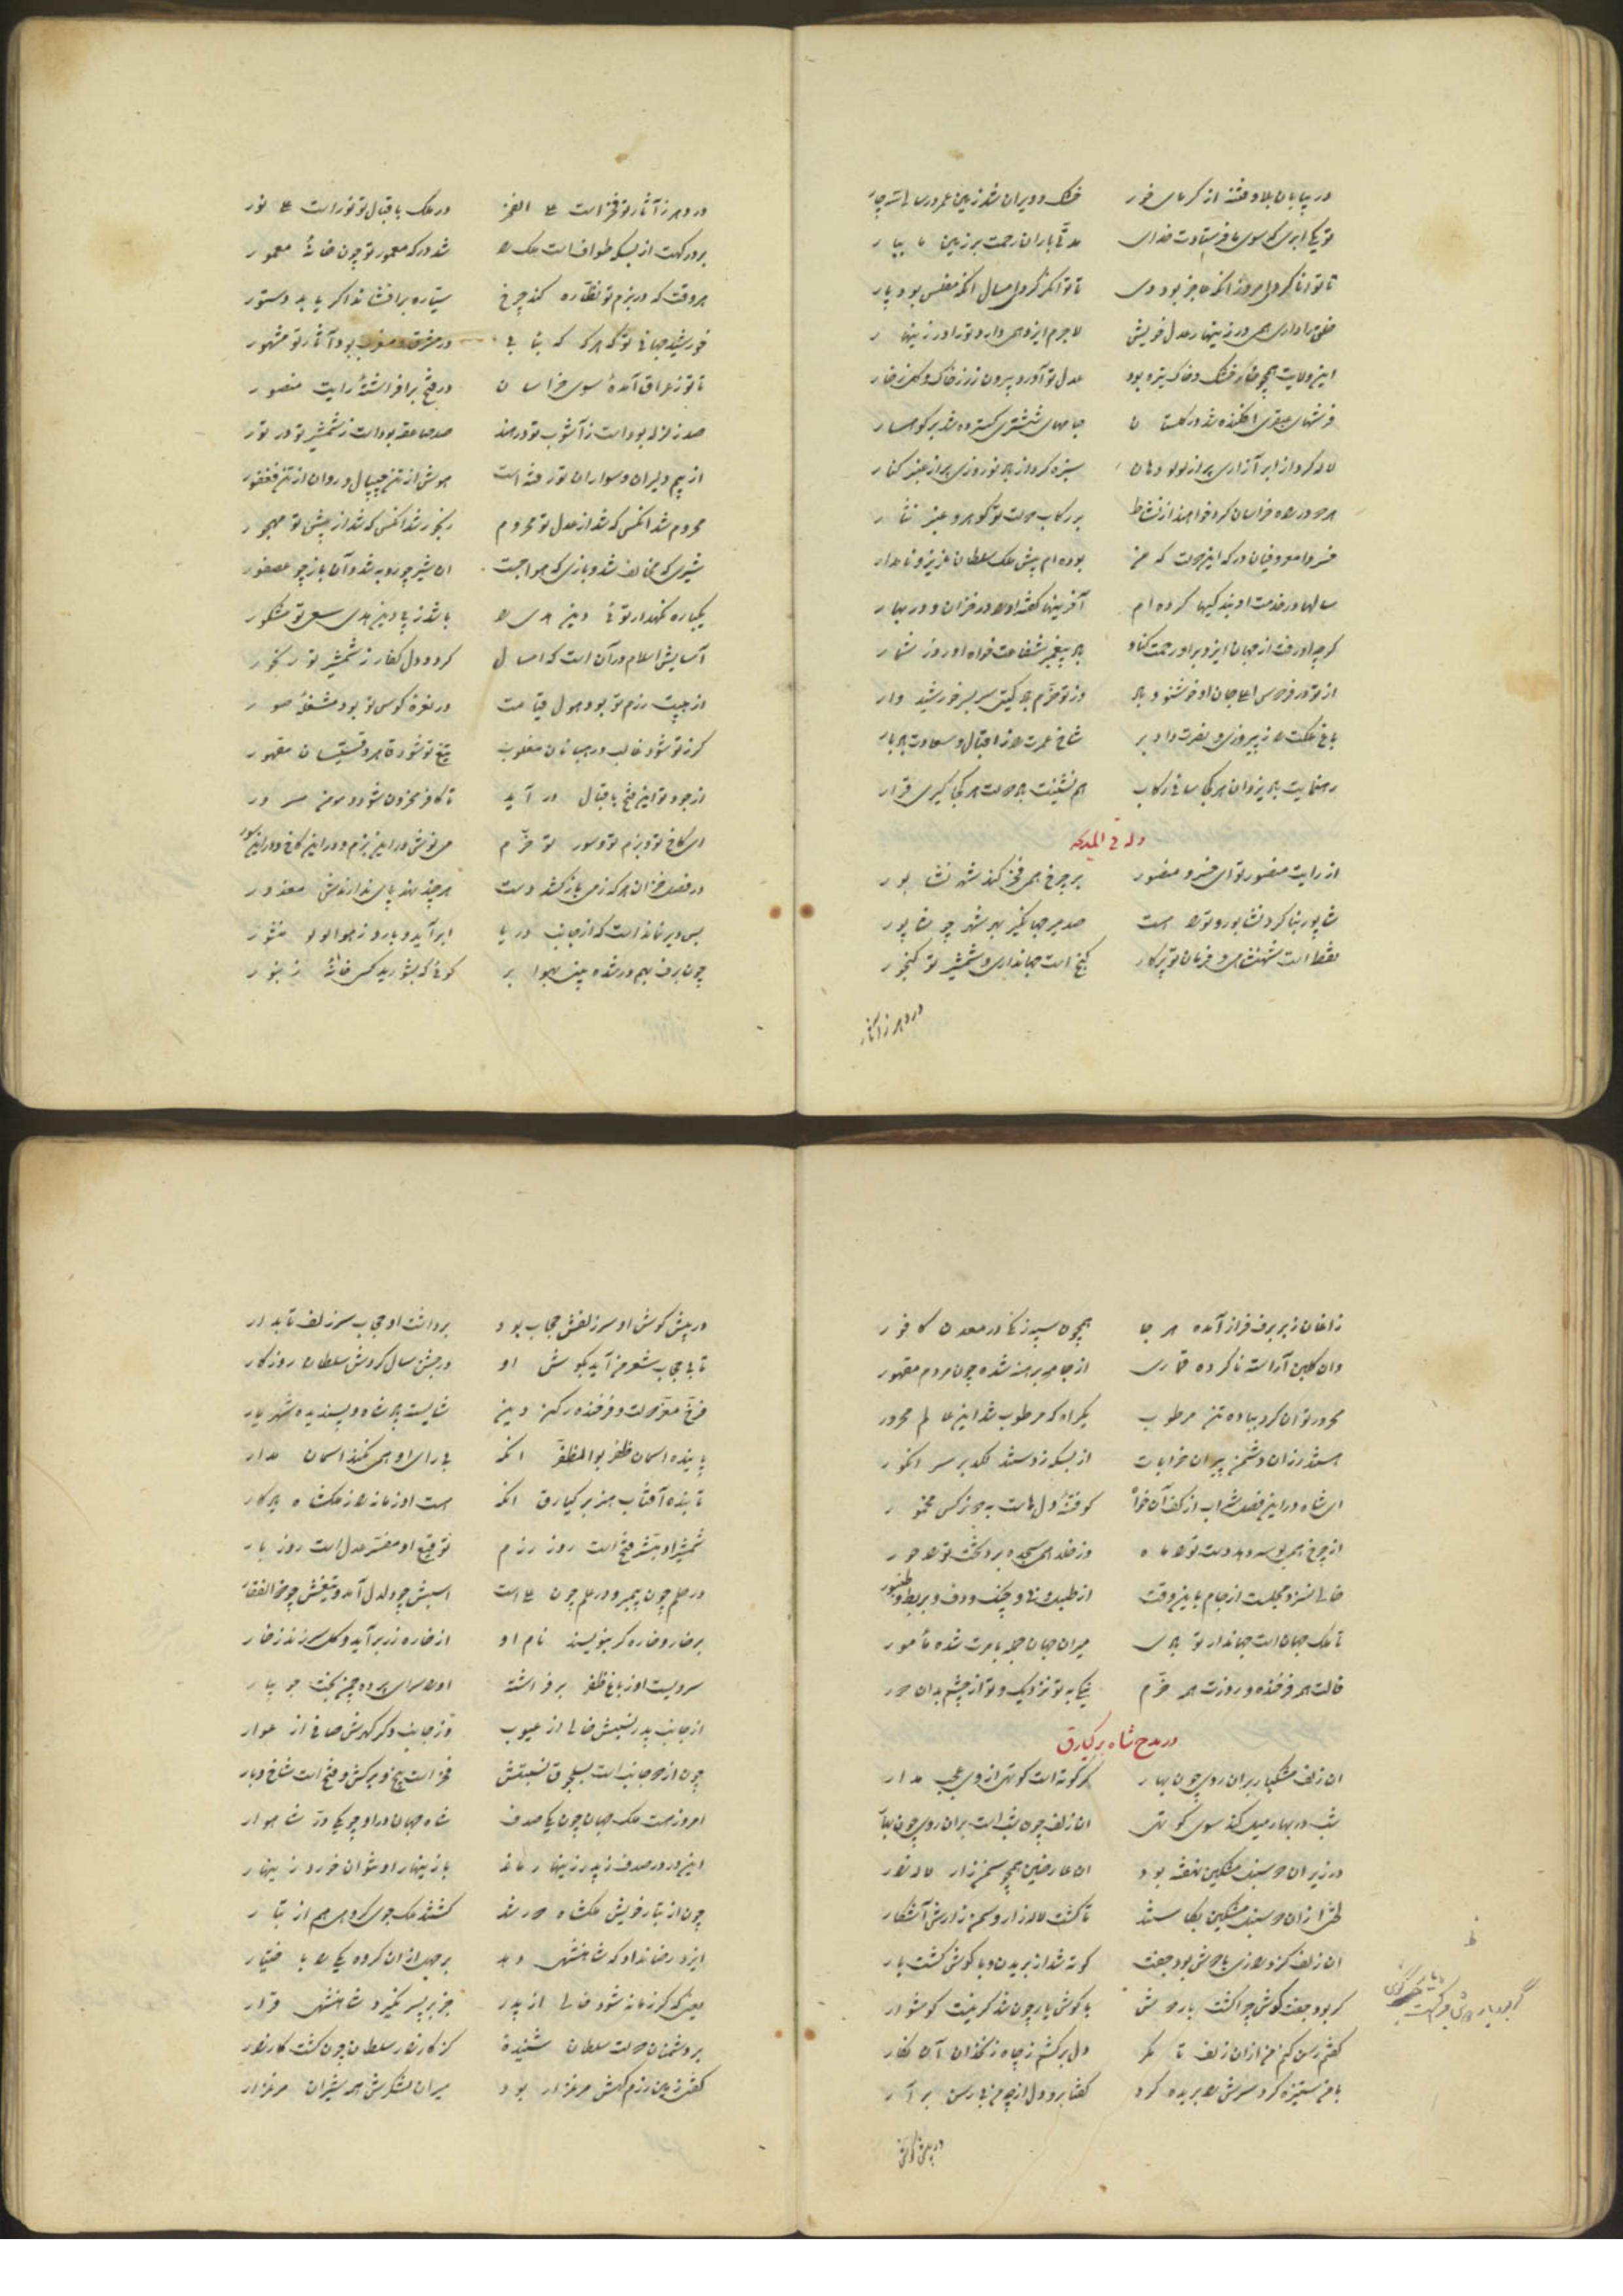 در بیابان بلا و فتنه از گرمای خور خشک و ویران شد زمین عمر و رسالت
تو یکی ابری که سوی ما فرستادت خدای باران رحمت بر زمین ما ببار
تا توانا کردی امروز آنکه عاجز بود دی تا توانگر کردی امسال آنکه مفلس بود پار
خلق را داری همی در زینهار عدل خویش لاجرم ایزد همی دارد ترا در زینهار
این ولایت همچو خار خشک و خاک تیره بود عدل تو آورد بیرون زر ز خاک و گل ز خار
فرشهای عبقری افکنده شد در گلستان جامهای ششتری گسترده شد بر کوهسار
لاله کرد از ابر آزاری پر از لؤلؤ دهان سبزه کرد از باد نوروزی پر از عنبر کنار
هر دو در راه خراسان کرد خواهند از نشاط بر رکاب دولت تو گوهر و عنبر نثار
خسروا معروفیان درگه این دولت که من بوده‌ام پیش ملک سلطان عزیز و نامدار
سالها در خدمت او بندگیها کرده‌ام آفرینها گفته او را در خزان و در بهار
گرچه او رفت از جهان ایزد بر او رحمت کناد باد پیغمبر شفاعت خواه او روز شمار
از تو در فردوس اعلی جان او خوشنود باد وز تو خرم باد گیتی سر بسر خورشید وار
باغ ملکت را ز پیروزی و نصرت داد بر شاخ عمرت را ز اقبال و سعادت باد بار
رهنمایت باد یزدان هر کجا سائی رکاب همنشینت باد دولت هر کجا گیری قرار
وله فی المدیحه
از رایت منصور تو ای خسرو منصور بر چرخ همی فخر کند شهر نشابور
شاپور بنا کرد نشابور و ترا هست صد میر جهانگیر بهر شهر چو شاپور
نقطه است شهنشاهی و فرمان تو پرگار گنج است جهانداری و شمشیر تو گنجور
در دهر ز آثار
در دهر ز آثار تو فخر است علی الفخر در ملک باقبال تو نور است علی نور
بر درگهت از بسکه طوافست ملک را شد درگه معمور تو چون خانهٔ معمور
هر وقت که در بزم تو نظاره کند چرخ سیاره برافشاند اگر یابد دستور
خورشید جهانی تو که هرگه که بتابی در مشرق و مغرب بود آثار تو مشهور
تا تو ز عراق آمدهٔ سوی خراسان در فتح برافراشتهٔ رایت منصور
صد زلزله بوده است ز آشوب تو در هند صد صاعقه بوده است ز شمشیر تو در تور
از بیم دلیران و سواران تو رفته است هوش از تن جیپال و روان از تن فغفور
محروم شد آنکس که شد از عدل تو محروم رنجور شد آنکس که شد از پیش تو مهجور
شیری که مخالف شد و بازی که هوا جست آن شیر چو روبه شد و آن باز چو عصفور
یکباره نگهدار توئی دین هدی را باشد ز پی دین هدی سعی تو مشکور
آسایش اسلام در آن است که امسال گردد دل کفار ز شمشیر تو رنجور
از هیبت رزم تو بود هول قیامت در نعرهٔ کوس تو بود مشغلهٔ صور
گر ز تو شود غالب و رهبانان مغلوب تیغ تو شود قاهر و قسیسان مقهور
از جود تو این فتح باقبال درآید تا کافر محزون شود و مؤمن مسرور
ای کاخ تو و بزم تو و سور تو خرم می نوش در این بزم و در این کاخ و در این سور
در فصل خزان هر که ز می باز کشد دست هر چند نهد پای ندارندش معذور
بس دیر نمانده است که از جانب دریا ابر آید و بارد ز هوا لؤلؤ منثور
چون برف بهم در شده بینی بهوا بر گوئی که بشورید کسی خانهٔ زنبور
زاغان ز بر برف فراز آمده هر جا همچون سپه زنگی در معدن کافور
وان گلبن آراسته ناکرده قماری از جامه برهنه شده چون مردم مقمور
محرور توان کرد بباده تن مرطوب یکراه که مرطوب شد این عالم محرور
هستند رزان دشمن پیران خرابات از بسکه زدستند لگد بر سر انگور
ای شاه در این فصل شراب از کف آن خواه کو فتنهٔ دلهاست بدو نرگس مخمور
از چرخ همی بوسه دهد دست ترا ماه وز خلد همی سجده برد تخت ترا حور
خالی نسزد مجلست از جام باین وقت از طبل و نی و چنگ و دف و بربط و طنبور
تا ملک جهان است جهاندار تو بادی میران جهان جمله بامرت شده مأمور
فالت همه فرخنده و روزت همه خرم نیکی بتو نزدیک و تو از چشم بدان دور
در مدح شاه برکیارق
آن زلف مشکبار بر آن روی چون بهار گر کوته است کوتهی از وی عجب مدار
شب در بهار میل کند سوی کوتهی آن زلف چون شب است بر آن روی چون بهار
در زیر آن دو سنبل مشکین نهفته بود آن عارضین همچو سمن زار لاله زار
آن زلف کز درازی با دوش بود جفت کوته شد از بریدن و با گوش گشت یار
گر بود جفت گوش چرا گشت یار دوش با گوش یار چون شد گر نیست گوشوار
گفتم رسن کنم من از آن زلف تا مگر دل برکشم ز چاه زنخدان آن نگار
با من ستیزه کرد و سرش را بریده کرد گفتا برو دل از چه من بی رسن برآر
در پیش گوش
در پیش گوش او سر زلفش حجاب بود برداشت او حجاب سر زلف تابدار
تا بی حجاب شعر من آید بگوش او در جشن سال گردش سلطان روزگار
فرخ معز دولت و فرخنده رکن دین شایسته پادشاه و پسندیده شهریار
پاینده آسمان ظفر بوالمظفر آنکه بی رای او همی نکند آسمان مدار
تابنده آفتاب هنر برکیارق آنکه هست او زمانه را ز ملکشاه یادگار
شمشیر او مبشر فتح است روز رزم توقیع او مفسر عدل است روز بار
در حلم چون پیمبر و در علم چون علی است اسبش چو دلدل آمد و تیغش چو ذوالفقار
بر خار و خاره گر بنویسند نام او از خاره زر برآید و گل سر زند ز خار
سرویست او ز باغ ظفر برفراشته او را سرای پرده چمن تخت جویبار
از جانب پدر نسبش خالی از عیوب وز جانب دگر گهرش صافی از عوار
چون از دو جانب است بسلجوق نسبتش فخر است بیخ و برگش و فتح است شاخ و بار
امروز هست ملک جهان چون یکی صدف شاه جهان در او چو یکی در شاهوار
این در در صدف ز پدر زینهار ماند با زینهار او نتوان خورد زینهار
چون از تبار خویش ملکشاه دور شد گشتند ملک جوی گروهی هم از تبار
ایزد رضا نداد که شاهنشهی دهد بر جهل از آن گروه یکی را باختیار
یعنی که گر زمانه شود خالی از پدر جز بر پسر نگیرد شاهنشهی قرار
بر دشمنان دولت سلطان شنیدهٔ کز کارزار سلطان چون گشت کار زار
گفتی زمین رزم گهش مرغزار بود میران لشکرش همه شیران مرغزار